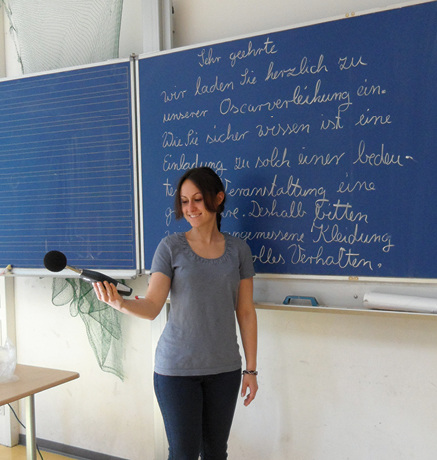 Sehr geehrte
wir laden Sie herzlich zu
unserer Oscarverleihung ein.
Wie Sie sicher wissen ist eine
Einladung zu solch einer bedeu-
Veranstaltung eine
Deshalb bitten
angemessene Kleidung
Verhalten.